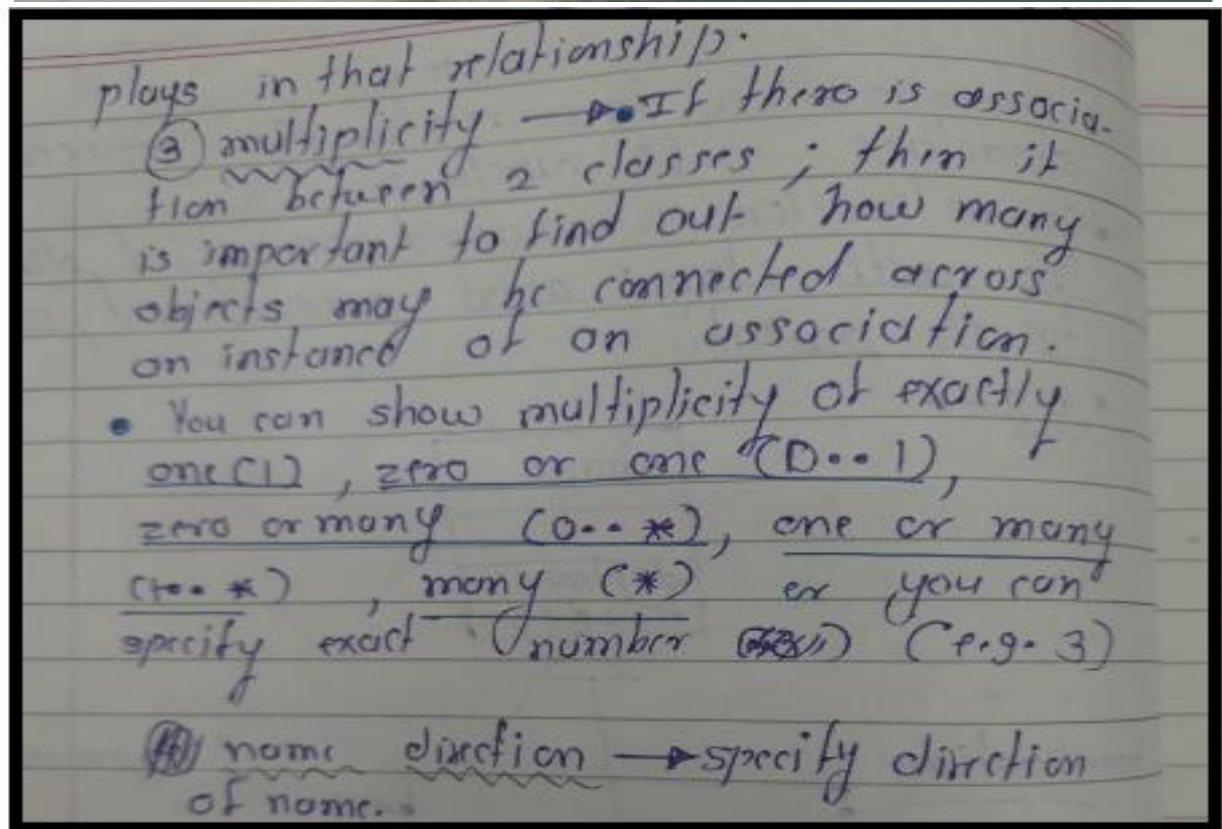 plays in that relationship.
③ multiplicity → • If there is associa-
tion between 2 classes ; then it
is important to find out how many
objects may be connected across
an instance of an association.
• You can show multiplicity of exactly
one (1) , zero or one (0..1),
zero or many (0..*), one or many
(1..*) , many (*) or you can
specify exact number (e.g. 3)
④ name direction → specify direction
of name.